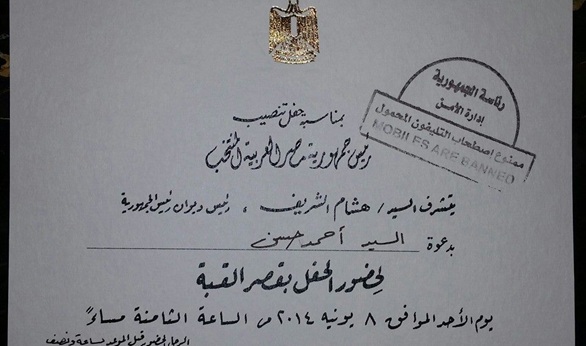 رئاسة الجمهورية
إدارة الأمن
ممنوع اصطحاب التليفون المحمول
MOBILES ARE BANNED
بمناسبة حفل تنصيب
رئيس جمهورية مصر العربية المنتخب
يتشرف السيد / هشام الشريف ، رئيس ديوان رئيس الجمهورية
بدعوة السيد أحمد حسن
لحضور الحفل بقصر القبة
يوم الأحد الموافق ٨ يونيه ٢٠١٤ م الساعة الثامنة مساءً
الرجاء الحضور قبل الموعد بساعة ونصف